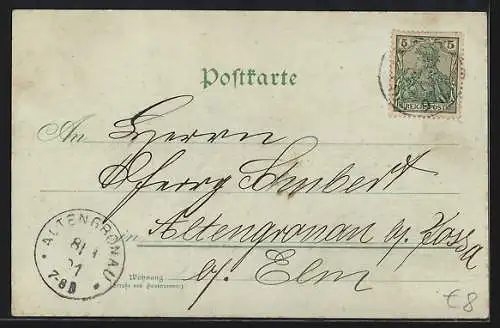 5 5
REICHSPOST
Postkarte
An Herrn
Pferrg Schubert
in Altengronau b/ Jossa
b/ Elm
ALTENGRONAU
8/1
01
7-8N
Wohnung
(Straße und Hausnummer)
€8